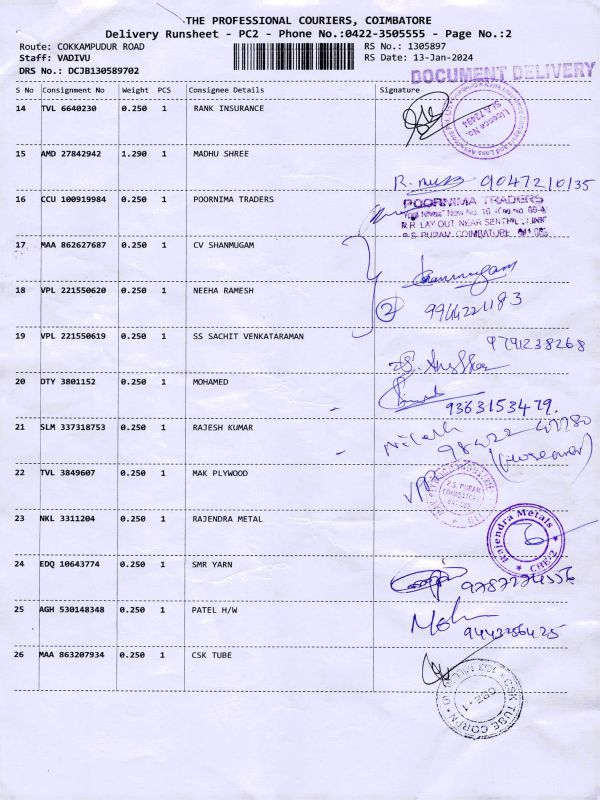 THE PROFESSIONAL COURIERS, COIMBATORE
Delivery Runsheet - PC2 - Phone No.:0422-3505555 - Page No.:2
Route: COKKAMPUDUR ROAD RS No.: 1305897
Staff: VADIVU RS Date: 13-Jan-2024
DRS No.: DCJB130589702
DOCUMENT DELIVERY
S No Consignment No Weight PCS Consignee Details Signature
14 TVL 6640230 0.250 1 RANK INSURANCE
Licence No
SLA 72494
15 AMD 27842942 1.290 1 MADHU SHREE
16 CCU 100919984 0.250 1 POORNIMA TRADERS
POORNIMA TRADERS
R.S. PURAM, COIMBATORE
17 MAA 862627687 0.250 1 CV SHANMUGAM
Shanmugam
18 VPL 221550620 0.250 1 NEEHA RAMESH
2
19 VPL 221550619 0.250 1 SS SACHIT VENKATARAMAN
9791238268
20 OTY 3801152 0.250 1 MOHAMED
9363153479.
21 SLM 337318753 0.250 1 RAJESH KUMAR
22 TVL 3849607 0.250 1 MAK PLYWOOD
R.S. PURAM
COIMBATORE
23 NKL 3311204 0.250 1 RAJENDRA METAL
Rajendra Metals
CBE-2
24 EDQ 10643774 0.250 1 SMR YARN
25 AGH 530148348 0.250 1 PATEL H/W
26 MAA 863207934 0.250 1 CSK TUBE
CSK TUBE CORPN
CBE-1